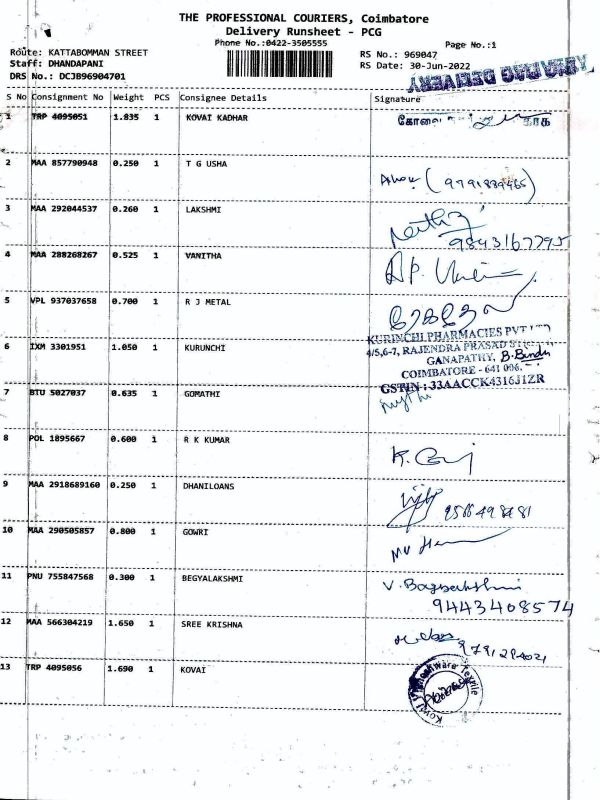 THE PROFESSIONAL COURIERS, Coimbatore
Delivery Runsheet - PCG
Phone No.:0422-3505555
Page No.:1
Route: KATTABOMMAN STREET
RS No.: 969047
Staff: DHANDAPANI
RS Date: 30-Jun-2022
DRS No.: DCJB96904701
DELIVERY
S No Consignment No Weight PCS Consignee Details Signature
1 TRP 4095051 1.835 1 KOVAI KADHAR
கோவை
2 MAA 857790948 0.250 1 T G USHA
3 MAA 292044537 0.260 1 LAKSHMI
9843167795
4 MAA 288268267 0.525 1 VANITHA
5 VPL 937037658 0.700 1 R J METAL
6 IXM 3301951 1.050 1 KURUNCHI
KURINCHI PHARMACIES PVT LTD
4/5,6-7, RAJENDRA PRASAD
GANAPATHY,
COIMBATORE - 641 006.
GSTIN : 33AACCK4316J1ZR
7 BTU 5027037 0.635 1 GOMATHI
8 POL 1895667 0.600 1 R K KUMAR
9 MAA 2918689160 0.250 1 DHANILOANS
10 MAA 290505857 0.800 1 GOWRI
11 PNU 755847568 0.300 1 BEGYALAKSHMI
9443408574
12 MAA 566304219 1.650 1 SREE KRISHNA
13 TRP 4095056 1.690 1 KOVAI